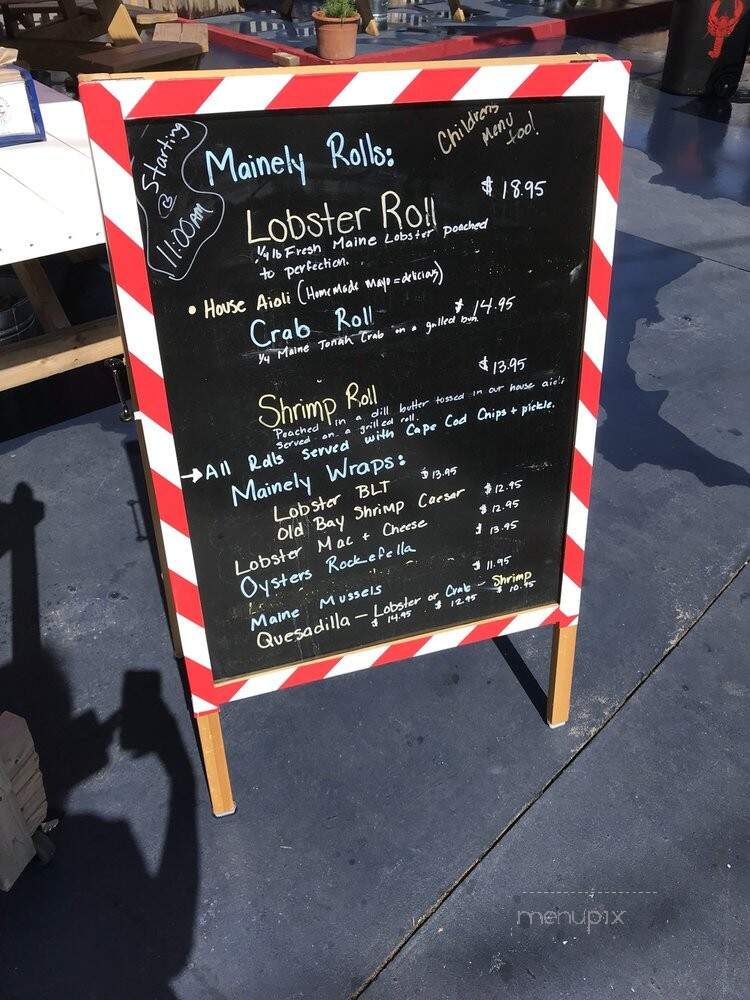 Starting
@
11:00AM
Mainely Rolls:
Childrens
Menu
too!
Lobster Roll $18.95
1/4 lb Fresh Maine Lobster poached
to perfection.
• House Aioli (Homemade mayo = delicious)
Crab Roll $14.95
1/4 Maine Jonah Crab on a grilled bun.
$13.95
Shrimp Roll
Poached in a dill butter tossed in our house aioli
served on a grilled roll.
→ All Rolls served with Cape Cod Chips + pickle.
Mainely Wraps:
Lobster BLT $13.95
Old Bay Shrimp Caesar $12.95
Lobster Mac + Cheese $12.95
Oysters Rockefella $13.95
Maine Mussels $11.95
Quesadilla - Lobster or Crab - Shrimp
$14.95 $12.95 $10.95
menupix